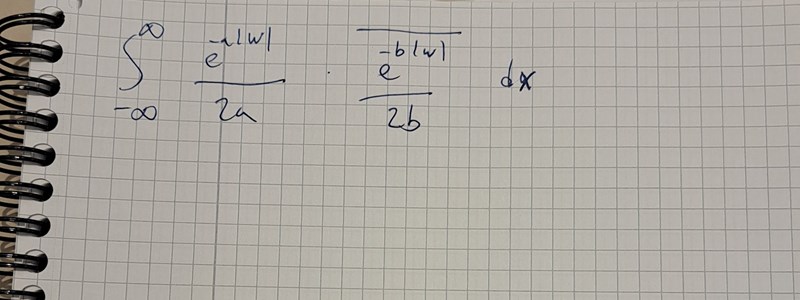 ∫_{-∞}^{∞} \frac{e^{-a|w|}}{2a} · \overline{\frac{e^{-b|w|}}{2b}} dx